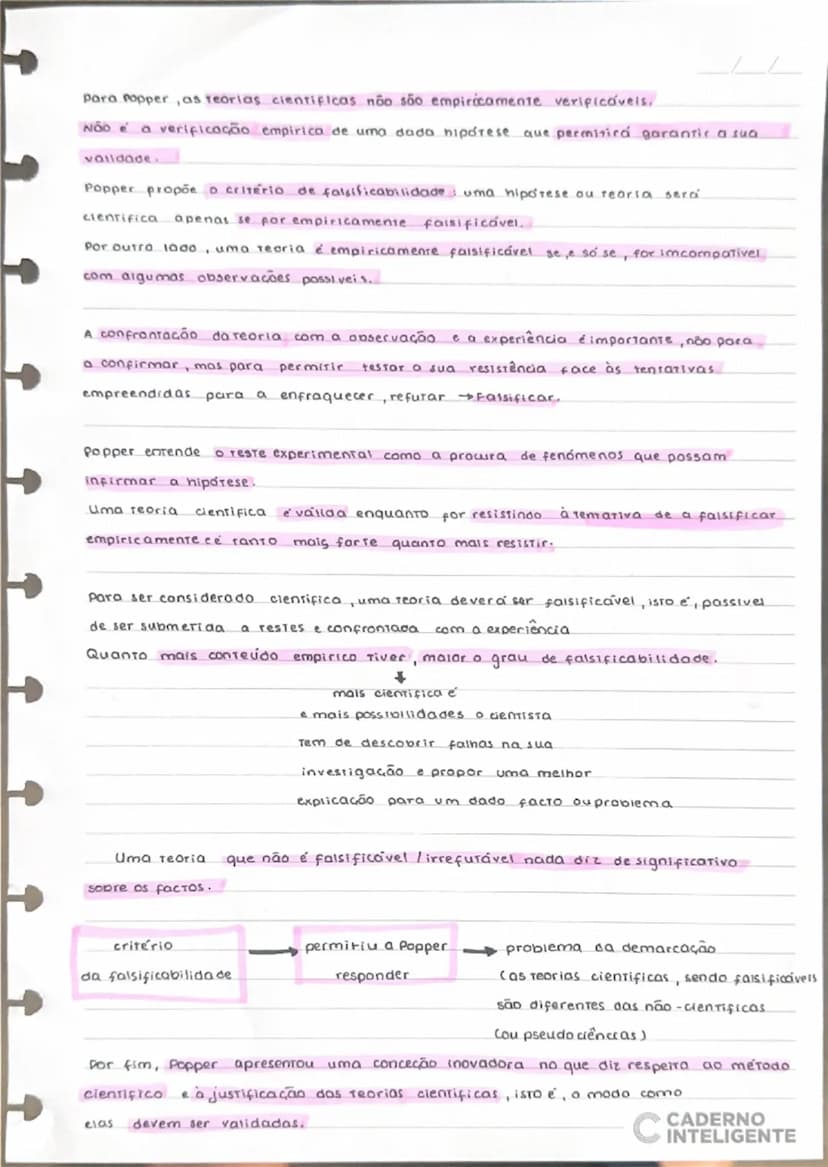 Para Popper, as teorias científicas não são empiricamente verificáveis.
Não é a verificação empírica de uma dada hipótese que permitirá garantir a sua
validade.
Popper propõe o critério de falsificabilidade: uma hipótese ou teoria será
científica apenas se for empiricamente falsificável.
Por outro lado, uma teoria é empiricamente falsificável se, e só se, for imcompatível
com algumas observações possíveis.
A confrontação da teoria com a observação e a experiência é importante, não para
a confirmar, mas para permitir testar a sua resistência face às tentativas
empreendidas para a enfraquecer, refutar → Falsificar.
Popper entende o teste experimental como a procura de fenómenos que possam
infirmar a hipótese.
Uma teoria científica é válida enquanto for resistindo à temativa de a falsificar
empiricamente e é tanto mais forte quanto mais resistir.
Para ser considerado científica, uma teoria deverá ser falsificável, isto é, passível
de ser submetida a testes e confrontada com a experiência
Quanto mais conteúdo empírico tiver, maior o grau de falsificabilidade.
↓
mais científica é
e mais possibilidades o cientista
tem de descobrir falhas na sua
investigação e propor uma melhor
explicação para um dado facto ou problema
Uma teoria que não é falsificável / irrefutável nada diz de significativo
sobre os factos.
critério → permitiu a Popper → problema da demarcação
da falsificabilidade responder (as teorias científicas, sendo falsificáveis
são diferentes das não-científicas
(ou pseudociências)
Por fim, Popper apresentou uma conceção inovadora no que diz respeito ao método
científico e à justificação das teorias científicas, isto é, o modo como
elas devem ser validadas.
CADERNO
INTELIGENTE